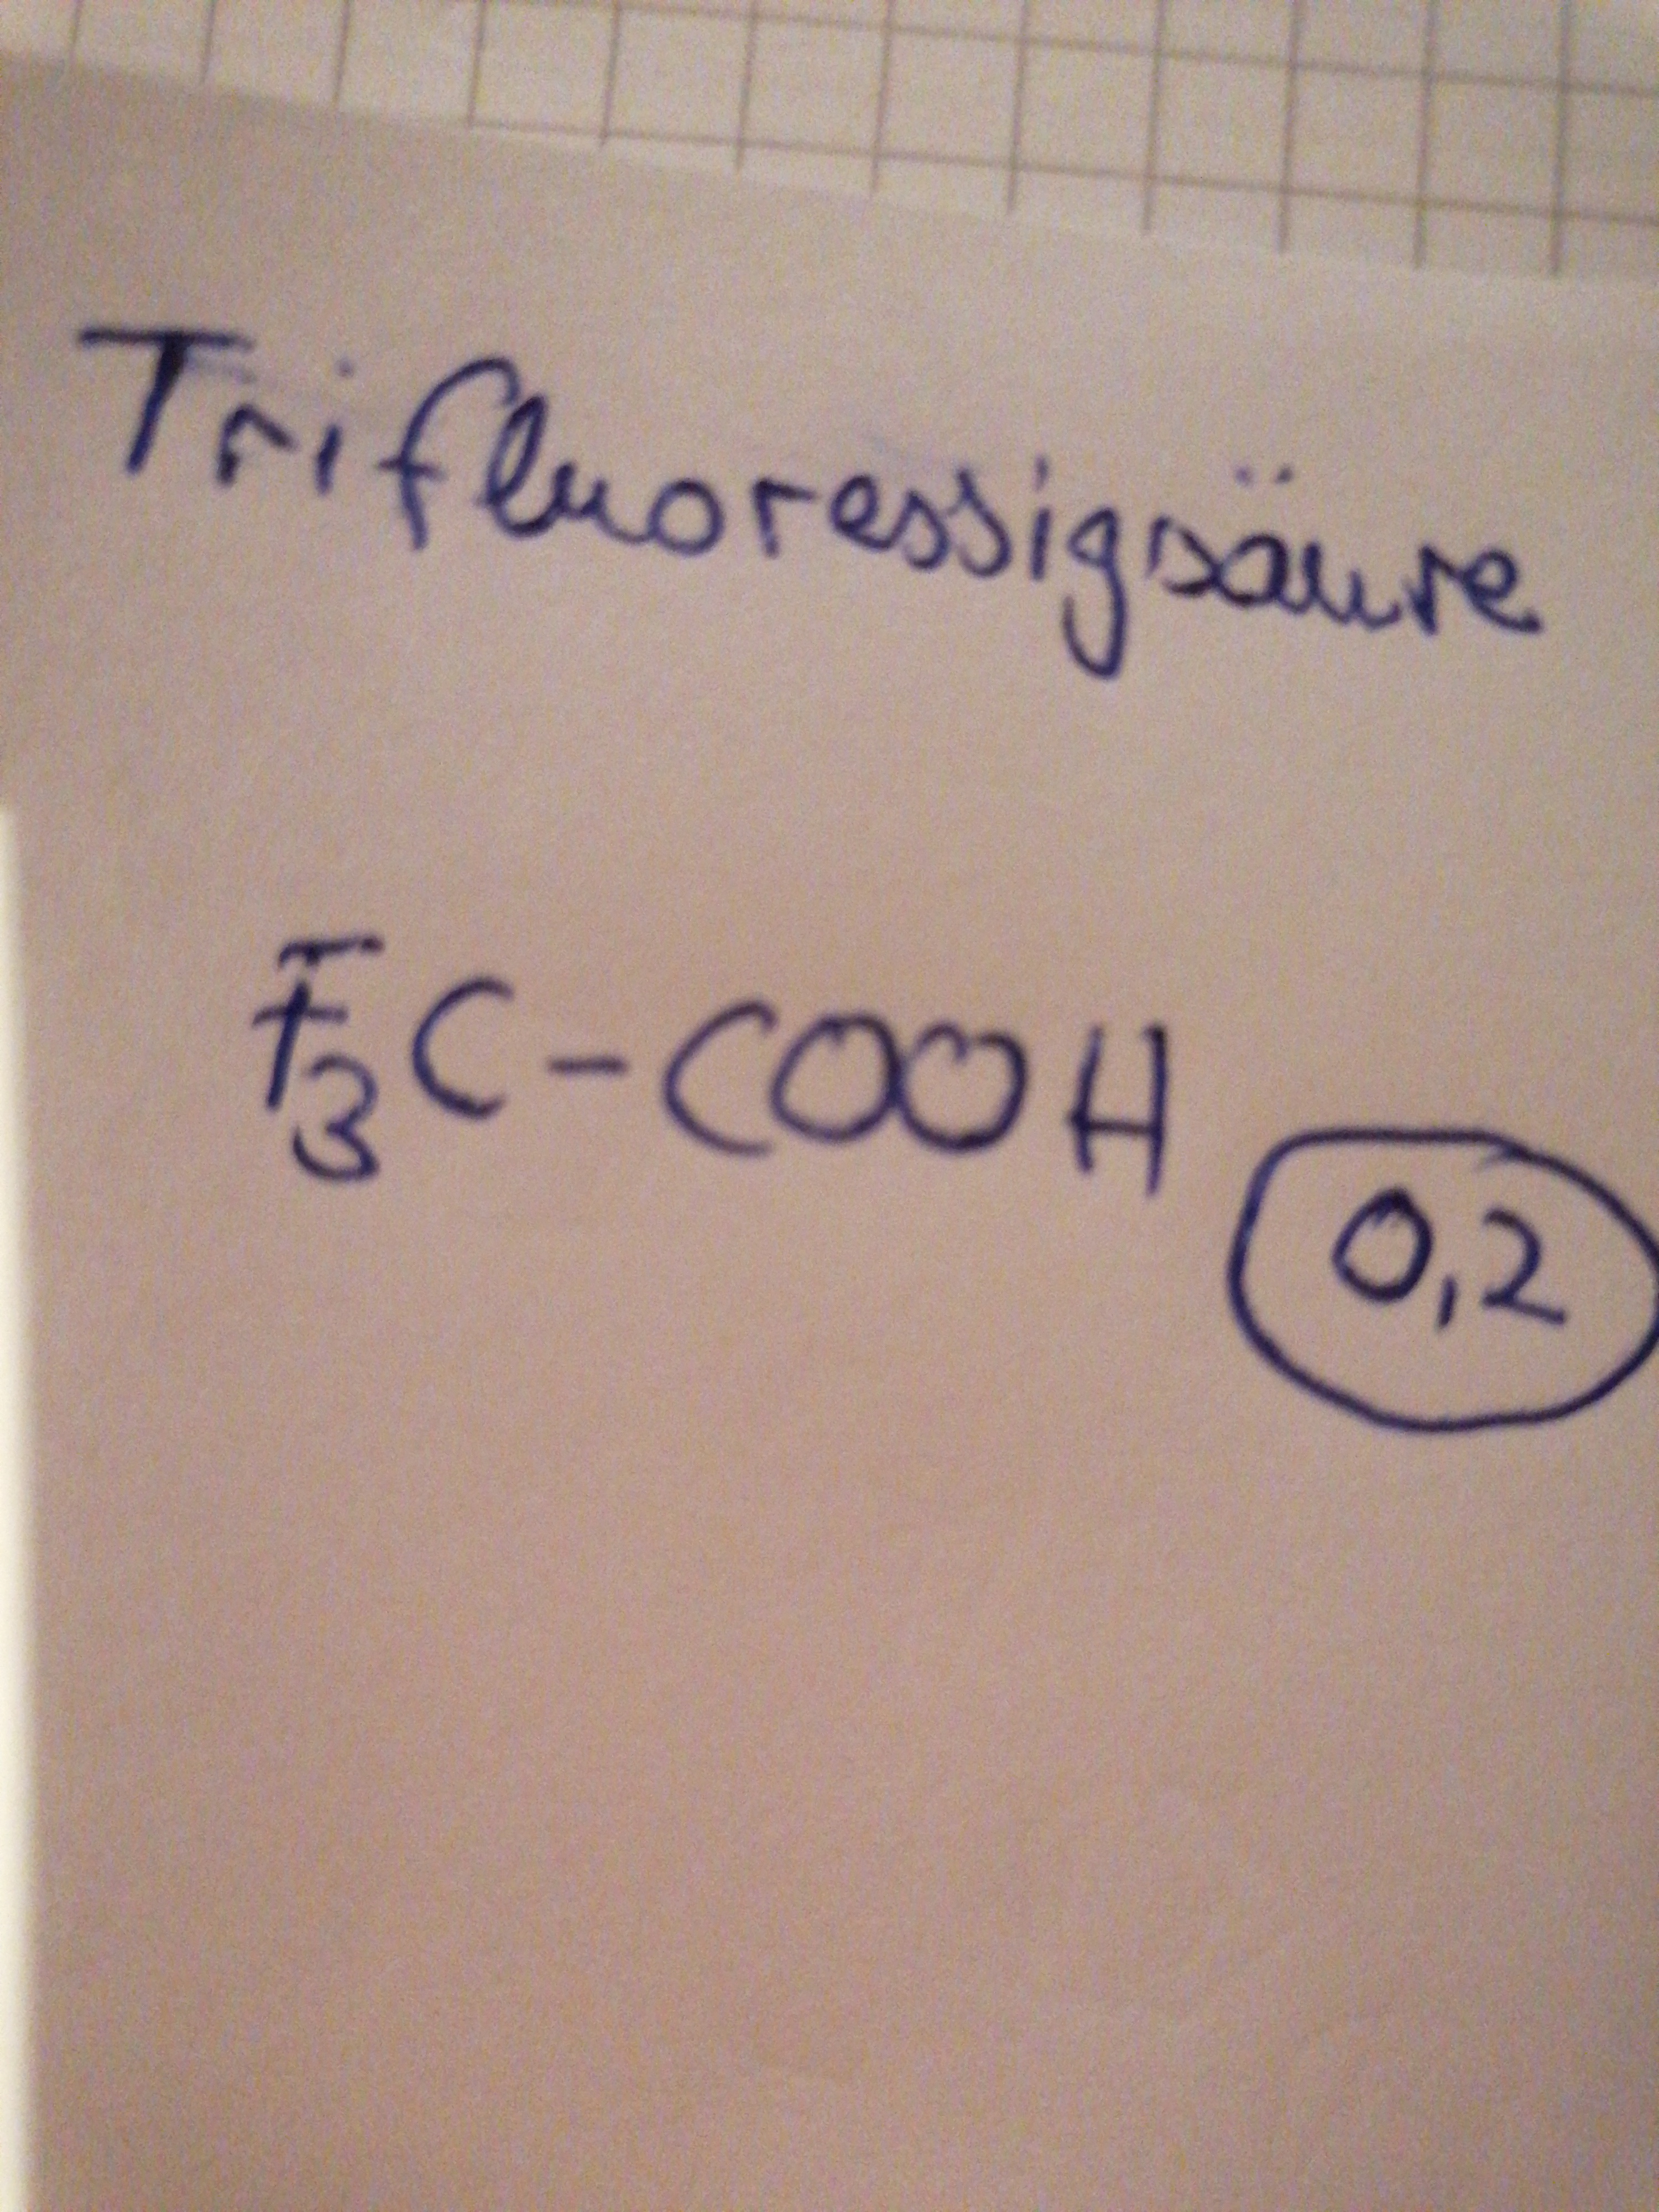 Trifluoressigsäure
F₃C-COOH
0,2